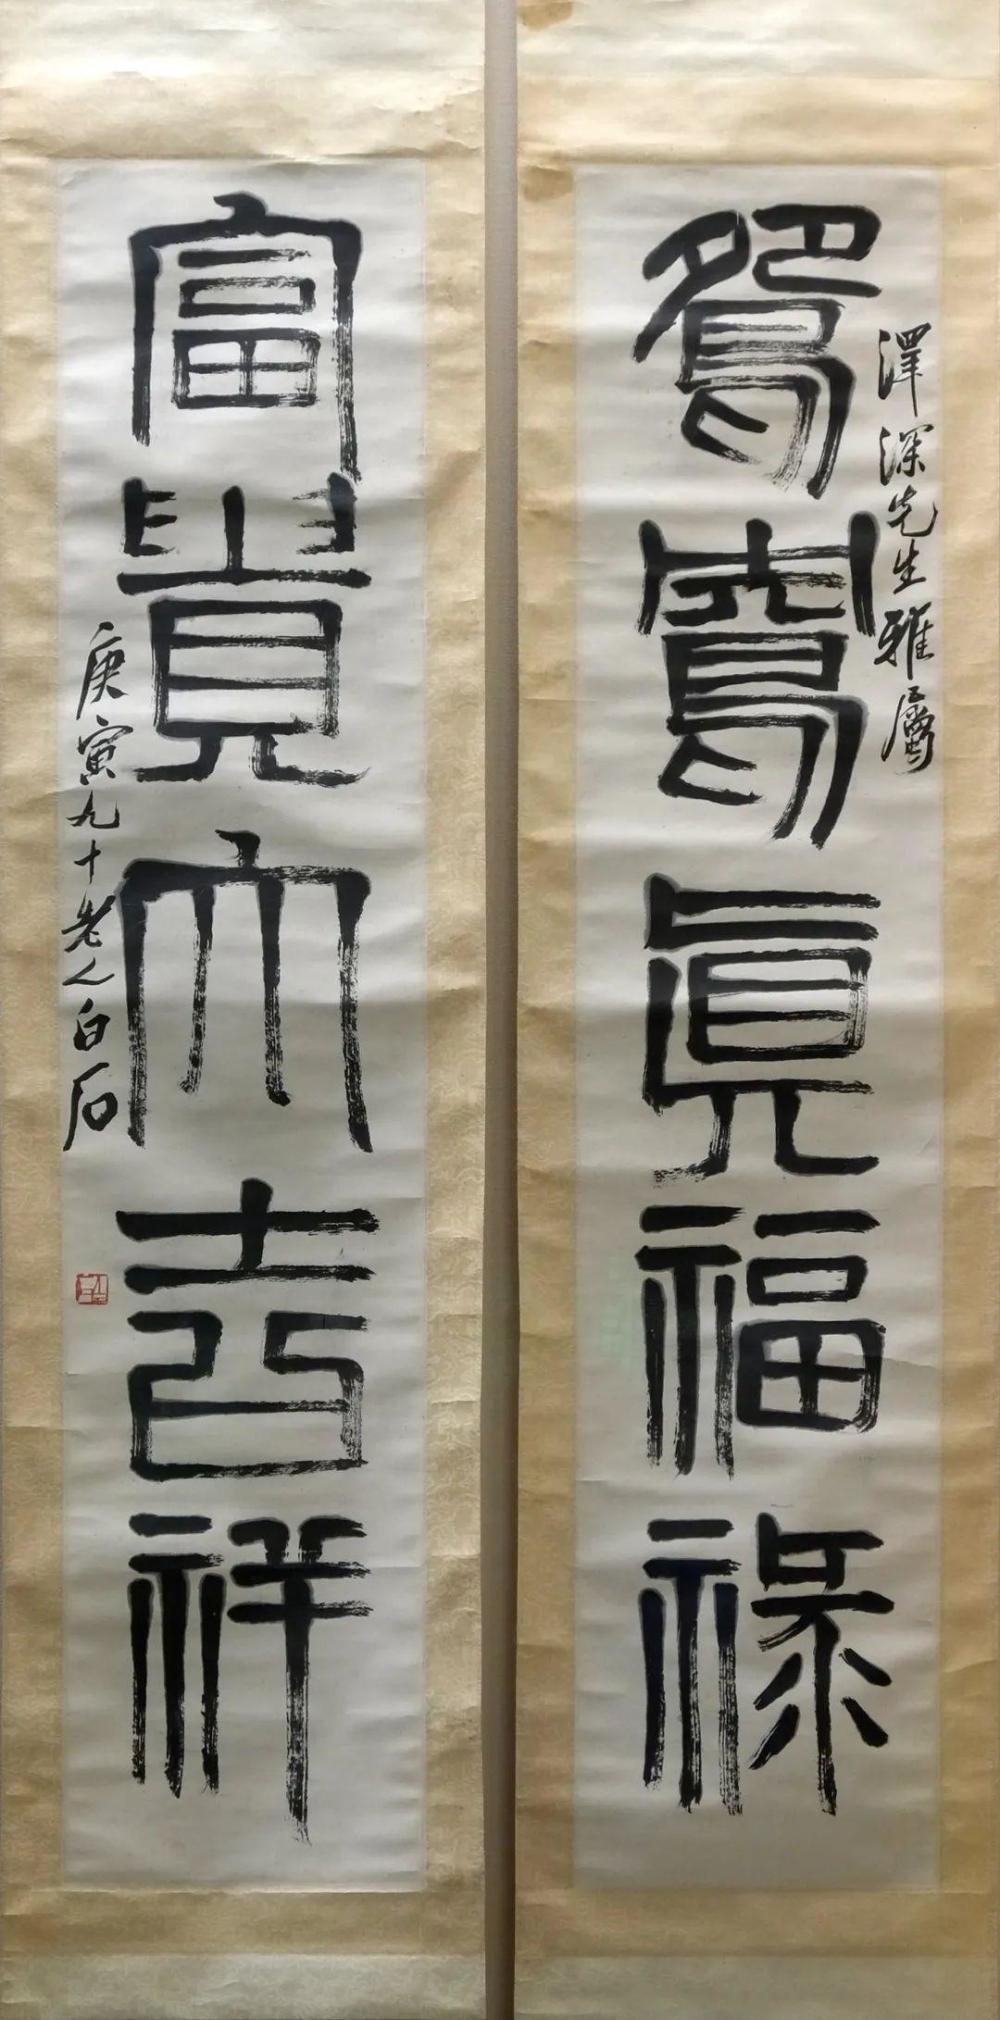 澤深先生雅屬
鴛鴦眞福祿
富貴大吉祥
庚寅九十老人白石